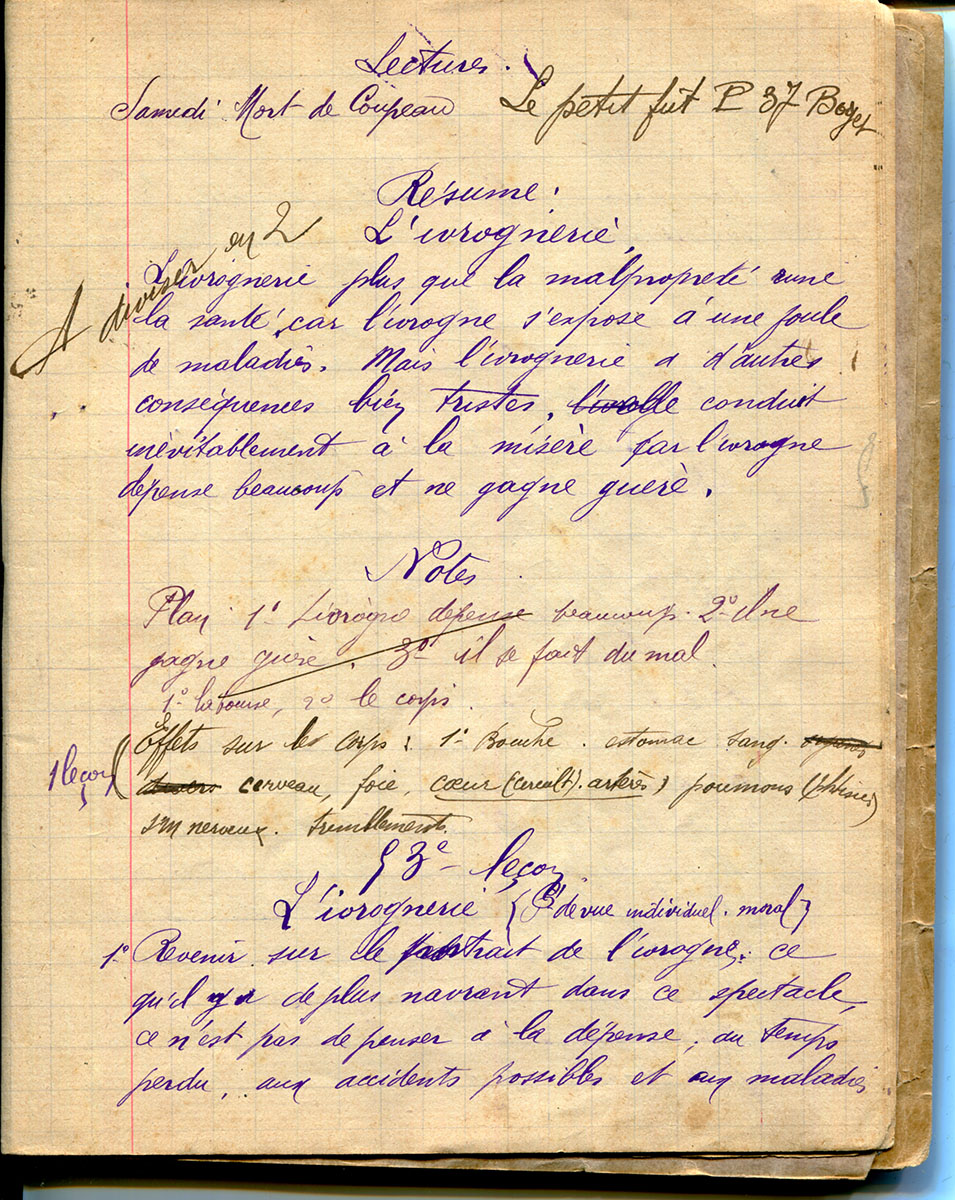 Lectures.
Samedi Mort de Coupeau
Le petit fût P 37 Boyer
Résumé.
L'ivrognerie
A diviser en 2
L'ivrognerie plus que la malpropreté ruine
la santé, car l'ivrogne s'expose à une foule
de maladies. Mais l'ivrognerie a d'autres
conséquences bien tristes, elle conduit
inévitablement à la misère car l'ivrogne
dépense beaucoup et ne gagne guère.
Notes
Plan 1° L'ivrogne dépense beaucoup. 2° il ne
gagne guère. 3° il se fait du mal.
1° la bourse, 2° le corps.
1 leçon
Effets sur le corps : 1° Bouche. estomac sang.
cerveau, foie, cœur (circult). artères) poumons (phtisie)
stm nerveux. tremblements
3e leçon
L'ivrognerie {Pt de vue individuel. moral}
1° Revenir sur le portrait de l'ivrogne; ce
qu'il y a de plus navrant dans ce spectacle,
ce n'est pas de penser à la dépense, au temps
perdu, aux accidents possibles et aux maladies